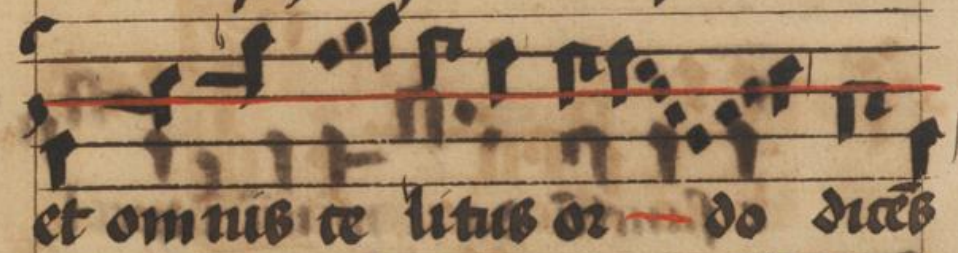 et omnis celitus or do dicēs